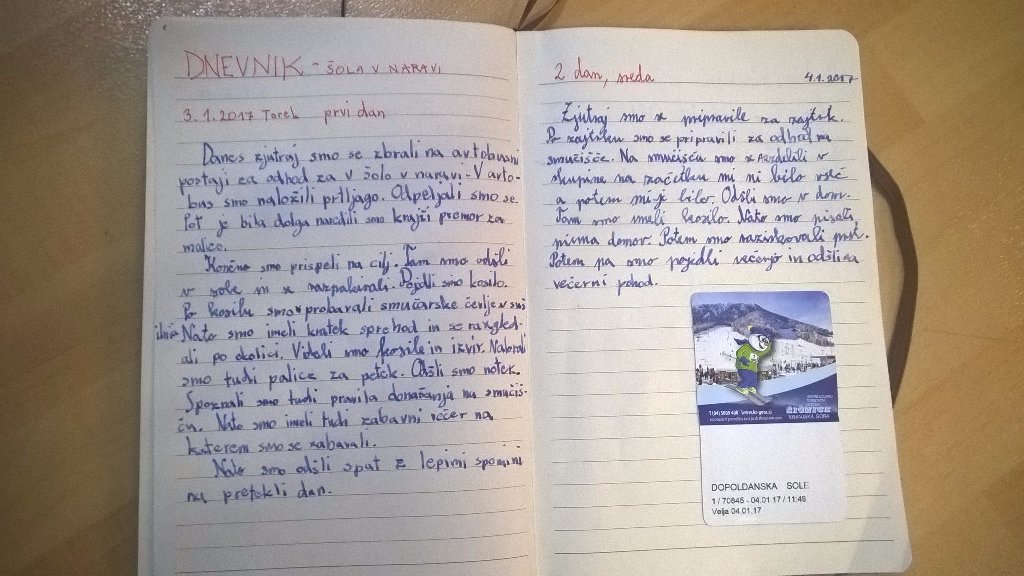 DNEVNIK - ŠOLA V NARAVI
3. 1. 2017 Torek prvi dan
Danes zjutraj smo se zbrali na avtobusni
postaji za odhod za v šolo v naravi. V avto-
bus smo naložili prtljago. Odpeljali smo se.
Pot je bila dolga naredili smo krajši premor za
malico.
Končno smo prispeli na cilj. Tam smo odšli
v sobe in se razpakirali. Pojedli smo kosilo.
Po kosilu smo probavali smučarske čevlje
Nato smo imeli kratek sprehod in se razgled-
ali po okolici. Videli smo kosile in izvir. Nabrali
smo tudi palice za petek. Odšli smo notek.
Spoznali smo tudi pravila donašanja na smučiš-
ču. Nato smo imeli tudi zabavni večer na
katerem smo se zabavali.
Nato smo odšli spat z lepimi spomini
na pretekli dan.
2 dan, sreda 4.1.2017
Zjutraj smo se pripravile za zajtrk.
Po zajtrku smo se pripravili za odhod na
smučišče. Na smučišču smo se razdelili v
skupine na začetku mi ni bilo všeč
a potem mi je bilo. Odšli smo v dom.
Tam smo imeli kosilo. Nato smo pisali
pisma domov. Potem smo raziskovali
Potem pa smo pojedli večerjo in odšli na
večerni pohod.
ŽIČNICE
KRANJSKA GORA
DOPOLDANSKA SOLE
1 / 70845 - 04.01.17 / 11:49
Velja 04.01.17